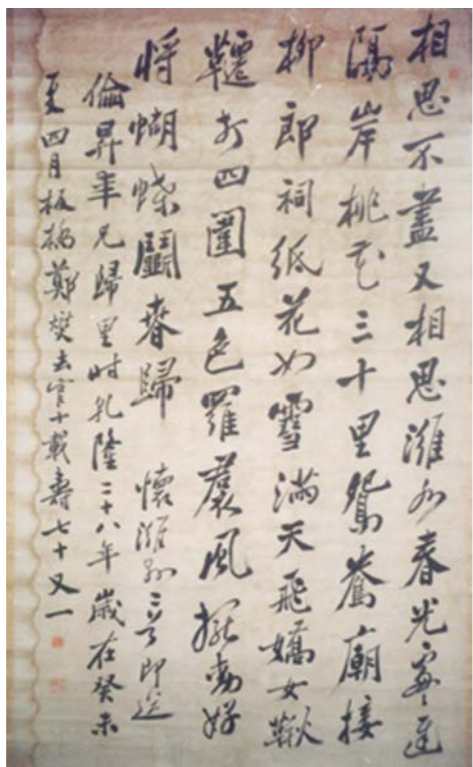 相思不盡又相思濰水春光處〻遲
隔岸桃花三十里鴛鴦廟接
柳郎祠紙花如雪滿天飛嬌女鞦
韆打四圍五色羅裠風擺動好
將蝴蝶鬭春歸 懷濰縣二首即送
倫昇年兄歸里時乾隆二十八年歲在癸未
夏四月板橋鄭燮去官十載壽七十又一